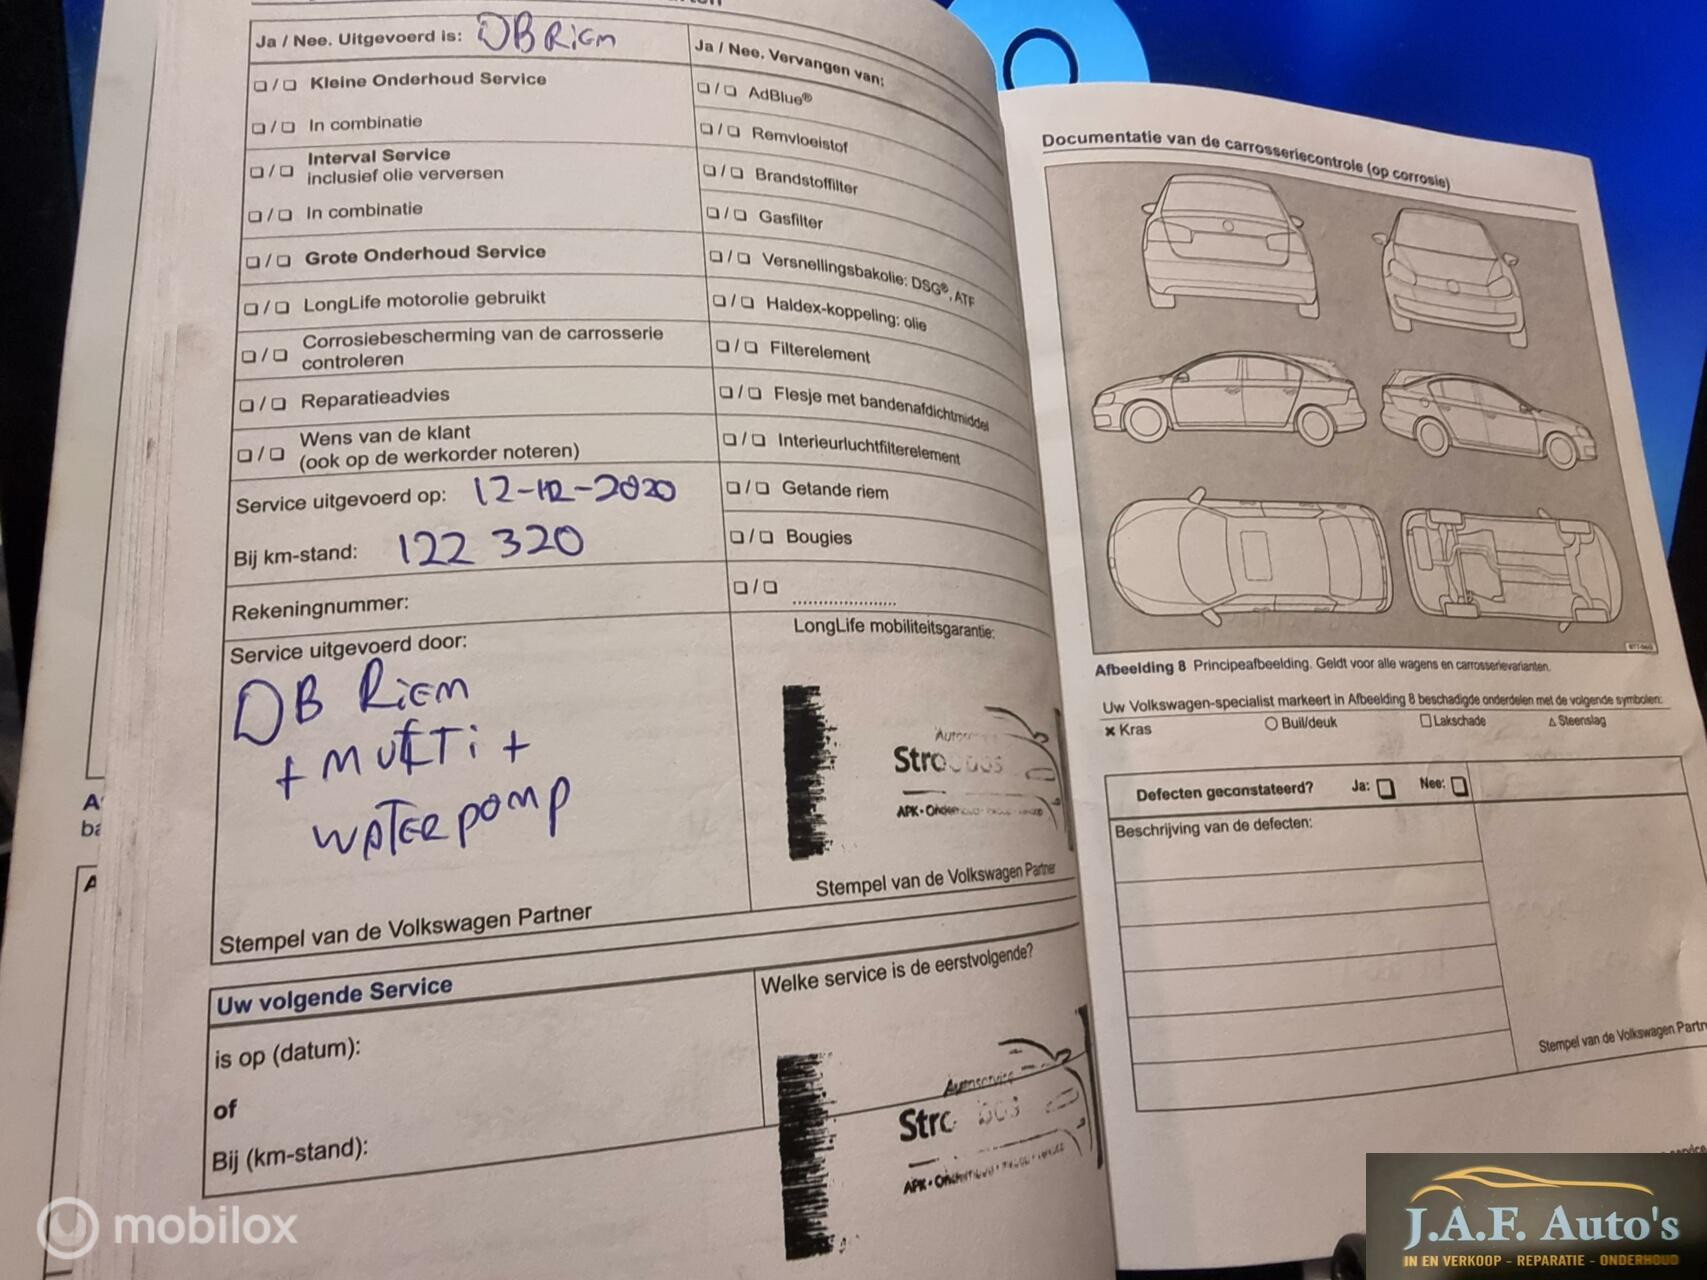 Ja / Nee. Uitgevoerd is: DB Riem
❏ / ❏ Kleine Onderhoud Service
❏ / ❏ In combinatie
❏ / ❏ Interval Service
inclusief olie verversen
❏ / ❏ In combinatie
❏ / ❏ Grote Onderhoud Service
❏ / ❏ LongLife motorolie gebruikt
❏ / ❏ Corrosiebescherming van de carrosserie
controleren
❏ / ❏ Reparatieadvies
❏ / ❏ Wens van de klant
(ook op de werkorder noteren)
Service uitgevoerd op: 12-12-2020
Bij km-stand: 122 320
Rekeningnummer:
Service uitgevoerd door:
DB Riem
+ MULTi +
WATERPOMP
Stempel van de Volkswagen Partner
Ja / Nee. Vervangen van:
❏ / ❏ AdBlue®
❏ / ❏ Remvloeistof
❏ / ❏ Brandstoffilter
❏ / ❏ Gasfilter
❏ / ❏ Versnellingsbakolie: DSG®, ATF
❏ / ❏ Haldex-koppeling: olie
❏ / ❏ Filterelement
❏ / ❏ Flesje met bandenafdichtmiddel
❏ / ❏ Interieurluchtfilterelement
❏ / ❏ Getande riem
❏ / ❏ Bougies
❏ / ❏ .....................
LongLife mobiliteitsgarantie:
APK
Stempel van de Volkswagen Partner
Uw volgende Service
is op (datum):
of
Bij (km-stand):
Welke service is de eerstvolgende?
Autoservice
APK
Documentatie van de carrosseriecontrole (op corrosie)
Afbeelding 8 Principeafbeelding. Geldt voor alle wagens en carrosserievarianten.
Uw Volkswagen-specialist markeert in Afbeelding 8 beschadigde onderdelen met de volgende symbolen:
× Kras ○ Buil/deuk □ Lakschade △ Steenslag
Defecten geconstateerd? Ja: ❏ Nee: ❏
Beschrijving van de defecten:
Stempel van de Volkswagen Partn
mobilox
J.A.F. Auto's
IN EN VERKOOP - REPARATIE - ONDERHOUD